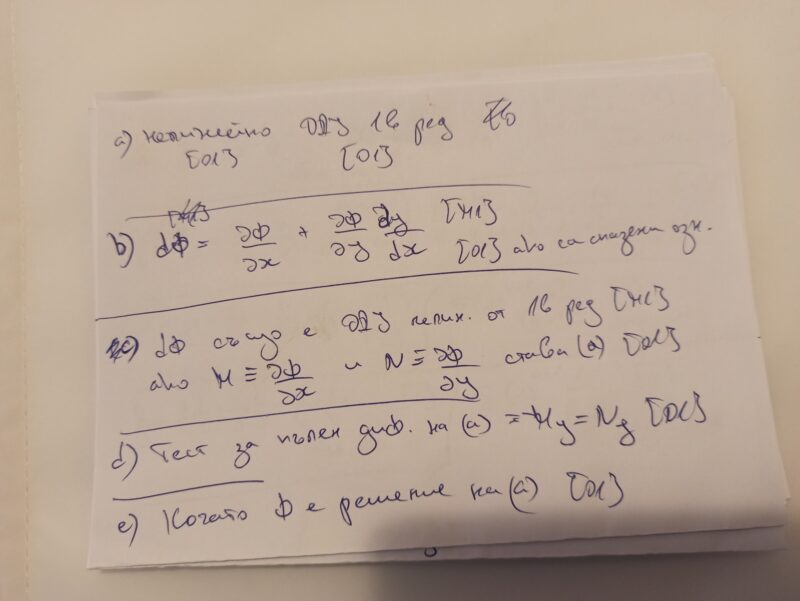 a) нелинейно ОДУ 1в ред
[01] [01]
b) dΦ = ∂Φ/∂x + ∂Φ/∂y dy/dx [M1]
[01] ако са спазени озн.
c) dΦ също е ОДУ нелин. от 1в ред [M1]
ако M ≡ ∂Φ/∂x и N ≡ ∂Φ/∂y става (a) [01]
d) Тест за пълен диф. на (a) = My = Ny [01]
e) Когато Φ е решение на (a) [01]